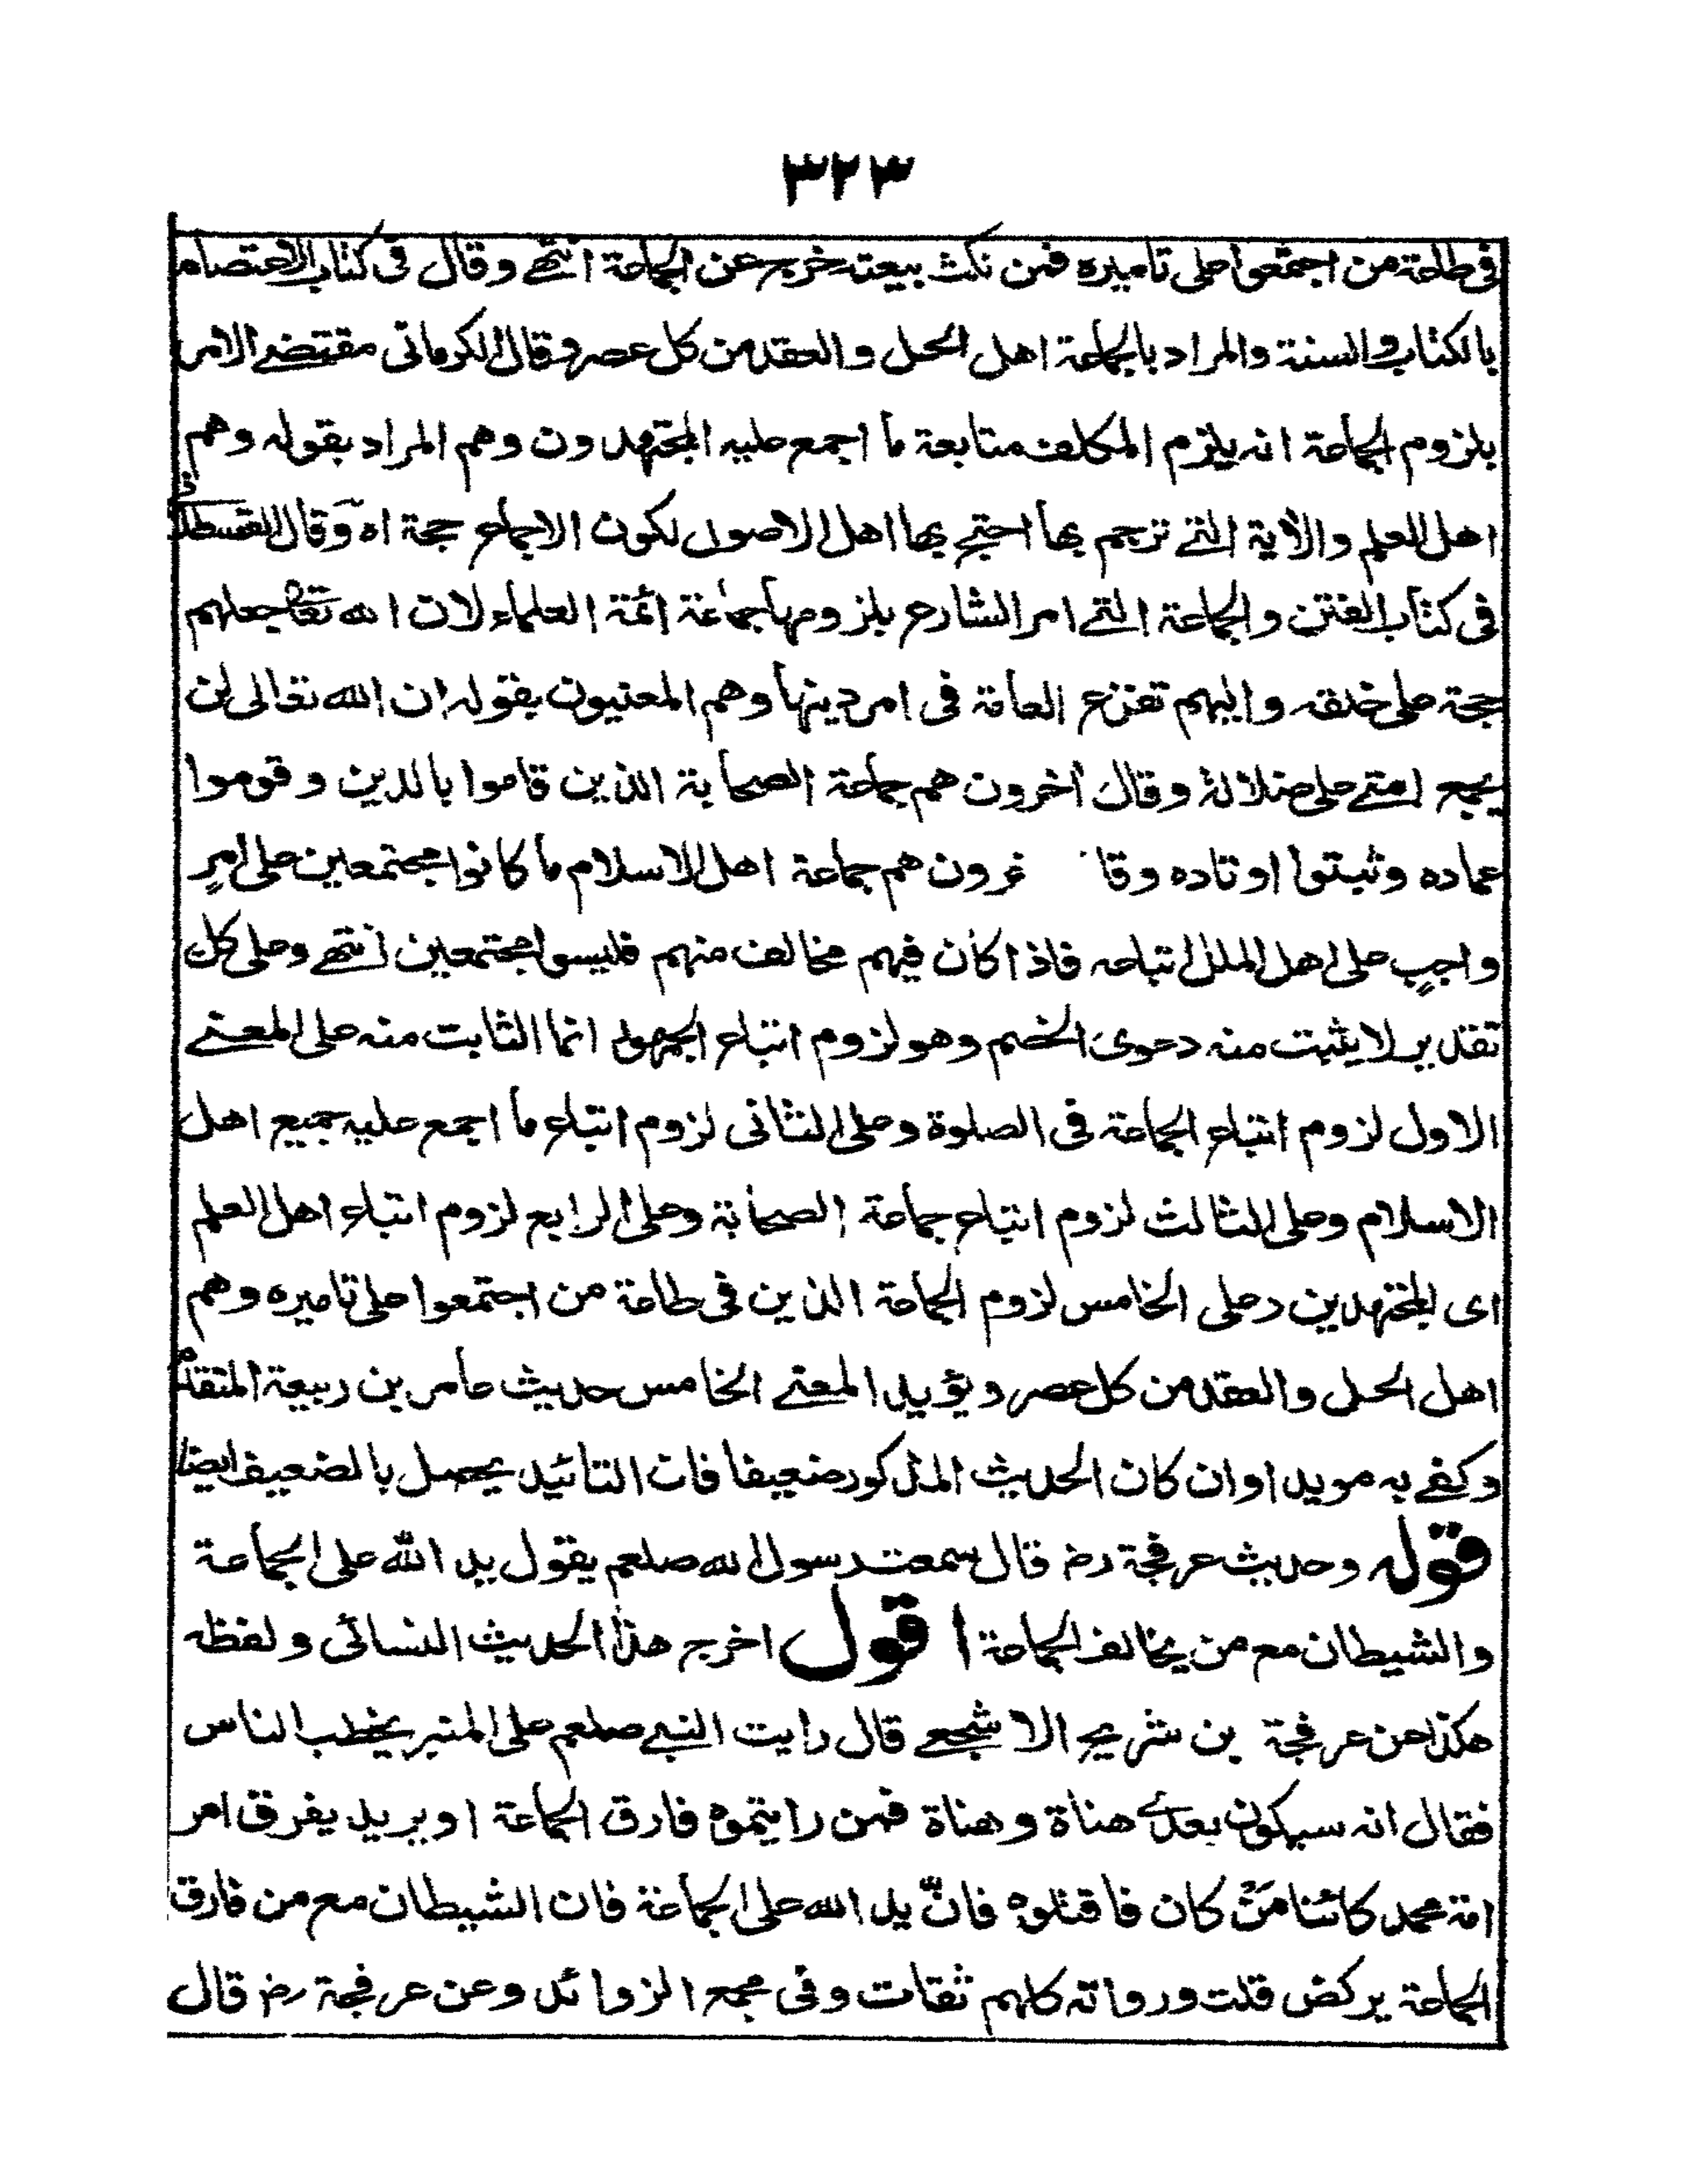 ٣٢٣
فى طاعة من اجتمعوا على تاميره فمن نكث بيعته خرج عن الجماعة انتهے وقال فى كتاب الاعتصام
بالكتاب والسنة والمراد بالجماعة اهل الحل والعقد من كل عصر وقال الكرمانى مقتضے الامر
بلزوم الجماعة انه يلزم المكلف متابعة ما اجمع عليه المجتهدون وهم المراد بقوله وهم
اهل العلم والآية التے ترجم بها احتج بها اهل الاصول لكون الاجماع حجة اه وقال القسطلانى
فى كتاب الفتن والجماعة التے امر الشارع بلزومها جماعة ائمة العلماء لان الله تعالى جعلهم
حجة على خلقه واليهم تفزع العامة فى امر دينها وهم المعنيون بقوله ان الله تعالى لن
يجمع امتے على ضلالة وقال آخرون هم جماعة الصحابة الذين قاموا بالدين وقوموا
عماده وثبتوا اوتاده وقا خرون هم جماعة اهل الاسلام ما كانوا مجتمعين على امرٍ
واجبٍ على اهل الملل اتباعه فاذا كان فيهم مخالف منهم فليسوا مجتمعين انتهے وعلى كل
تقدير لا يثبت منه دعوى الخصم وهو لزوم اتباع الجمهول انما الثابت منه على المعنے
الاول لزوم اتباع الجماعة فى الصلوة وعلى الثانى لزوم اتباع ما اجمع عليه جميع اهل
الاسلام وعلى الثالث لزوم اتباع جماعة الصحابة وعلى الرابع لزوم اتباع اهل العلم
اى المجتهدين وعلى الخامس لزوم الجماعة الذين فى طاعة من اجتمعوا على تاميره وهم
اهل الحل والعقد من كل عصر ويؤيد المعنے الخامس حديث عامر بن ربيعة المتقدم
وكفے به مويدا وان كان الحديث المذكور ضعيفا فان التائيد يحصل بالضعيف ايضا
قوله وحديث عرفجة رض قال سمعت رسول الله صلعم يقول يد الله على الجماعة
والشيطان مع من يخالف الجماعة اقول اخرج هذا الحديث النسائى ولفظه
هكذا عن عرفجة بن شريح الاشجعے قال رايت النبے صلعم على المنبر يخطب الناس
فقال انه سيكون بعدے هناة وهناة فمن رايتموه فارق الجماعة او يريد يفرق امر
امة محمد كائنا مَنْ كان فاقتلوه فانّ يد الله على الجماعة فان الشيطان مع من فارق
الجماعة يركض قلت ورواته كلهم ثقات وفى مجمع الزوائد وعن عرفجة رض قال